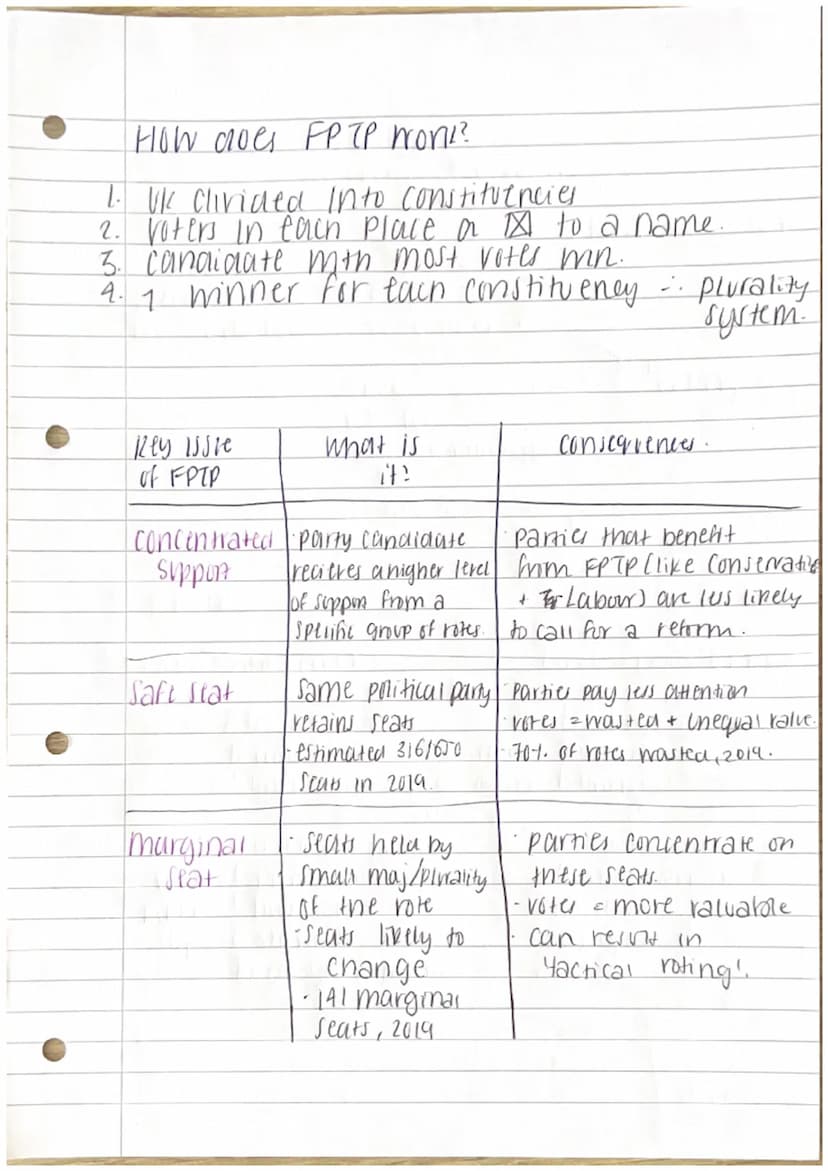 How does FPTP work?
1. UK divided into constituencies
2. voters in each place a ☒ to a name.
3. candidate with most votes win.
4. 1 winner for each constituency ∴ plurality
system.
Key issue
of FPTP
What is
it?
consequences.
concentrated
support
· party candidate
receives a higher level
of support from a
specific group of votes.
· Parties that benefit
from FPTP (like Conservative
+ Labour) are less likely
to call for a reform.
Safe seat
Same political party
retains seats
· estimated 316/650
seats in 2019.
· Parties pay less attention
· votes = wasted + unequal value.
· 70% of votes wasted, 2019.
marginal
seat
· seats held by
small maj/plurality
of the vote
· seats likely to
change
· 141 marginal
seats, 2019
· parties concentrate on
these seats.
· votes = more valuable
· can result in
'tactical voting'.